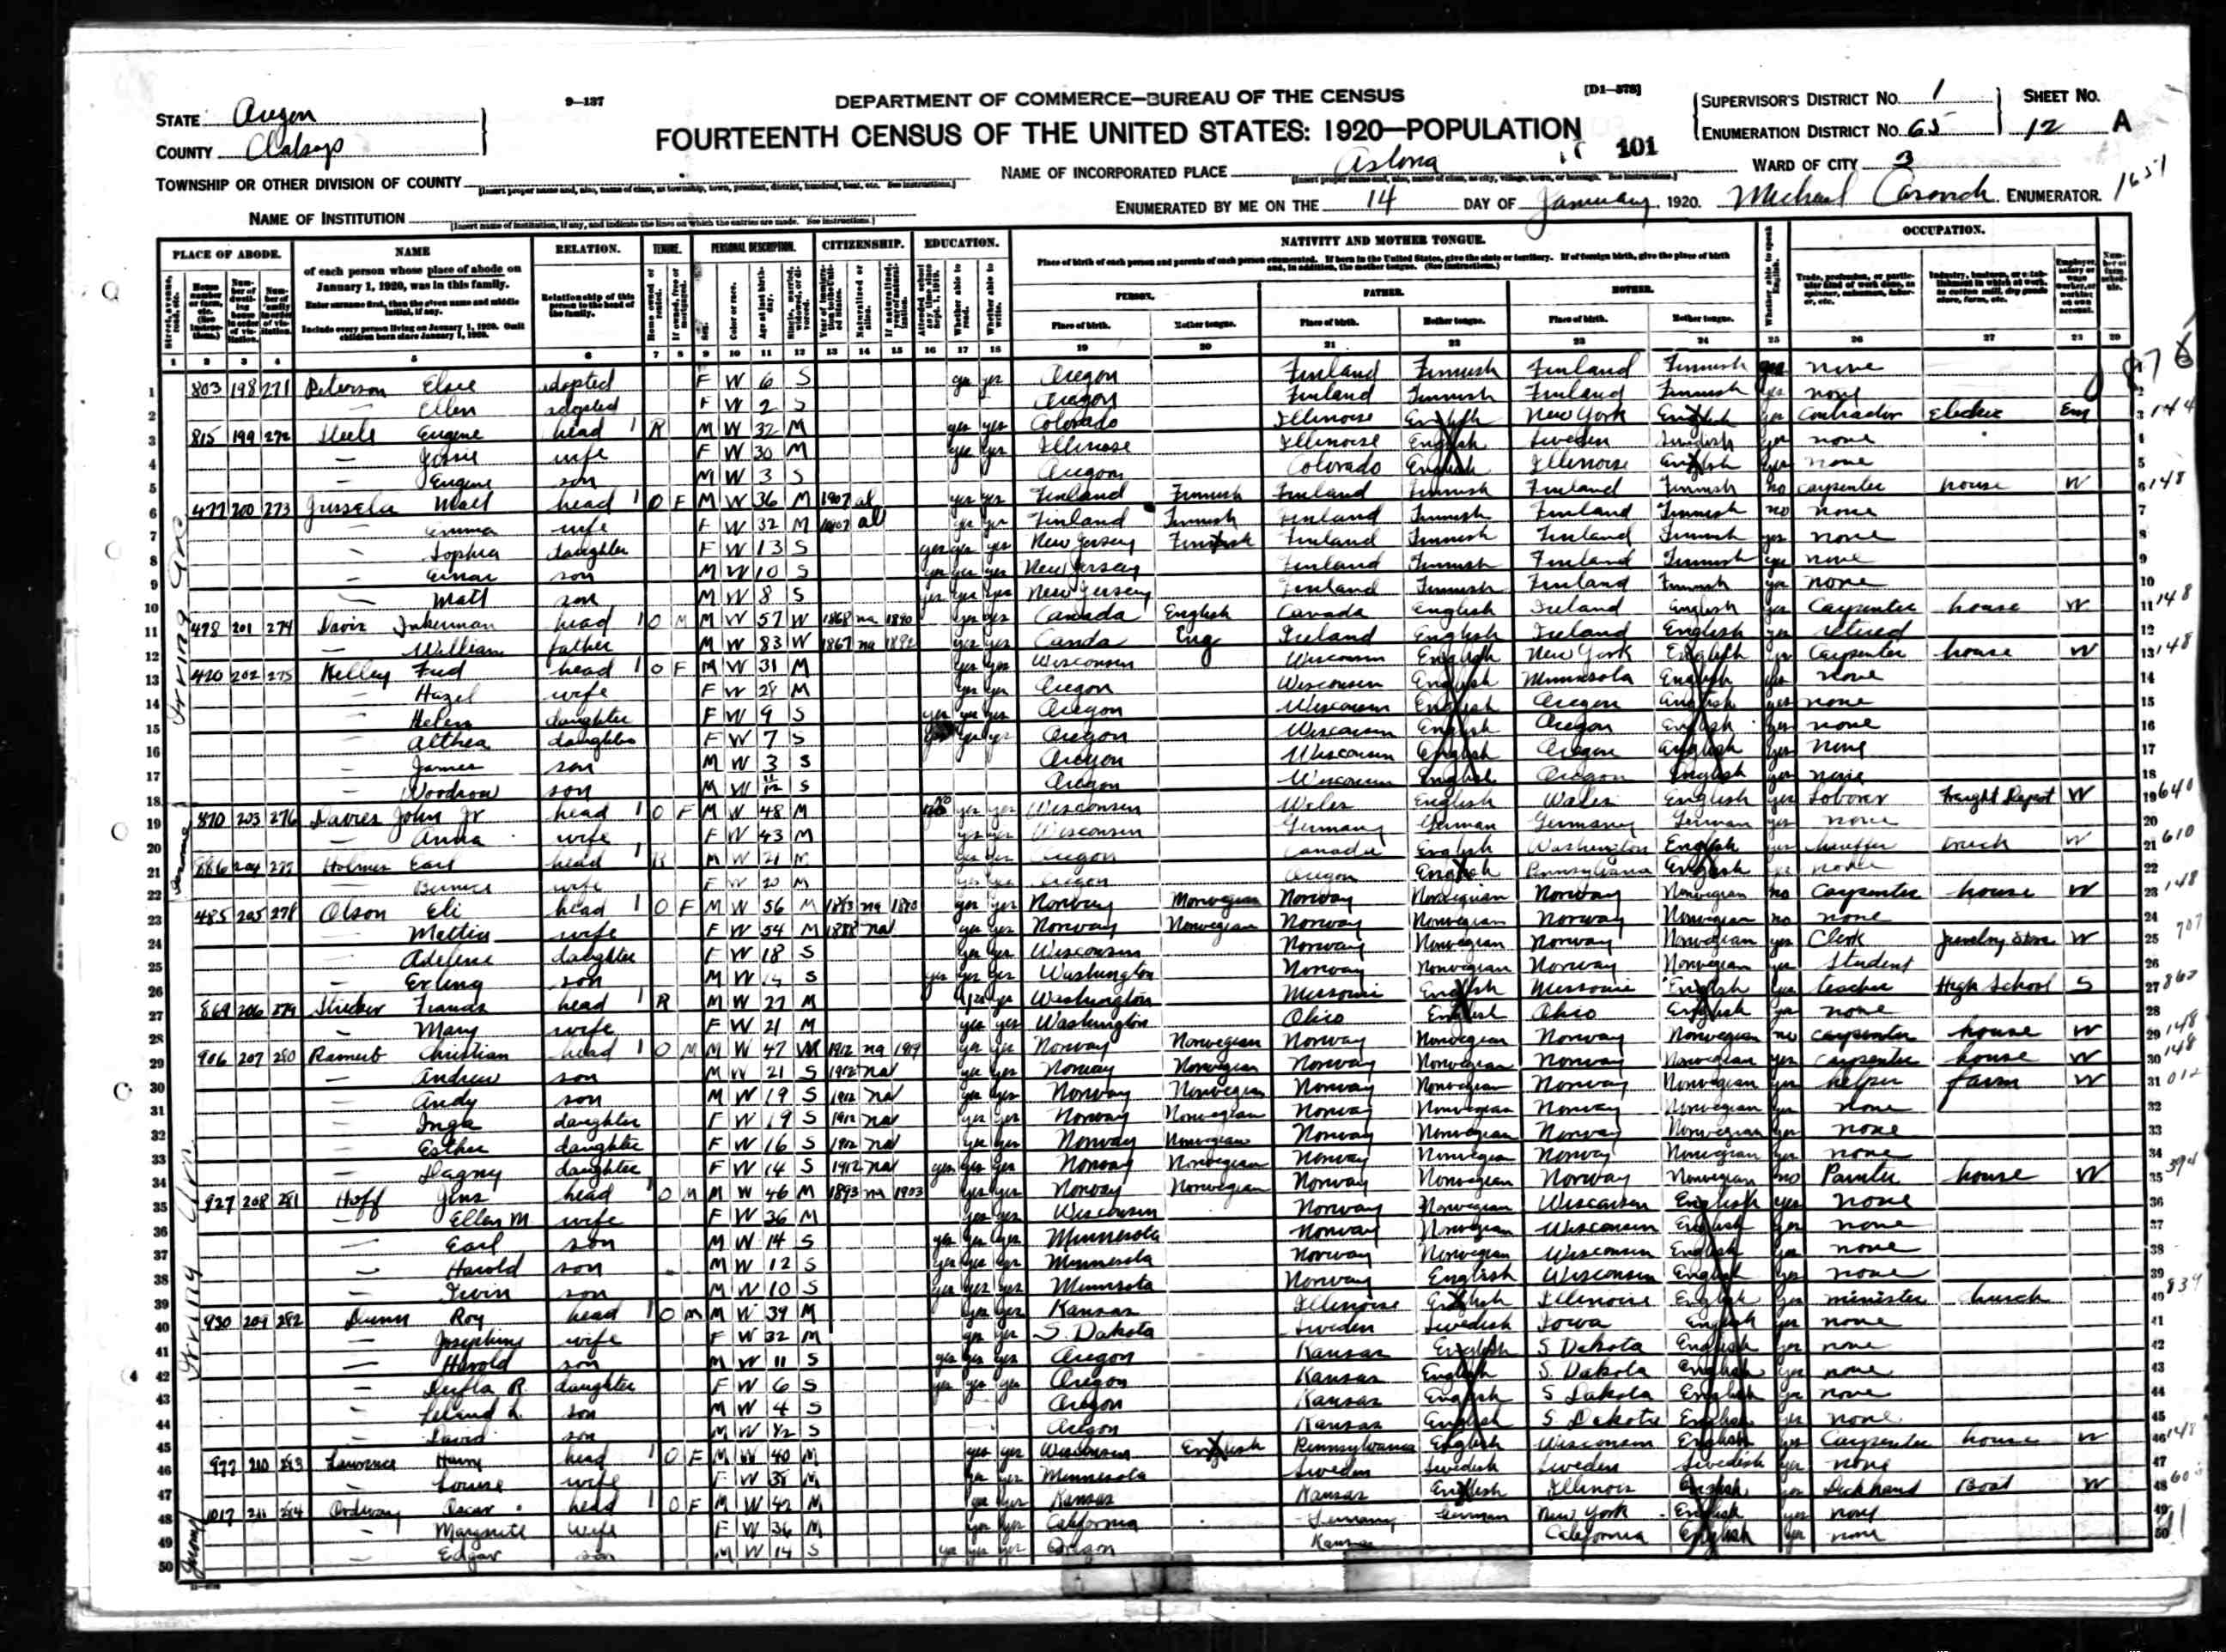 9-137
[D1-578]
DEPARTMENT OF COMMERCE—BUREAU OF THE CENSUS
FOURTEENTH CENSUS OF THE UNITED STATES: 1920—POPULATION
101
STATE Oregon
COUNTY Clatsop
TOWNSHIP OR OTHER DIVISION OF COUNTY
NAME OF INSTITUTION
NAME OF INCORPORATED PLACE Astoria
ENUMERATED BY ME ON THE 14 DAY OF January, 1920. Michael ENUMERATOR.
SUPERVISOR'S DISTRICT No. 1
ENUMERATION DISTRICT No. 65
SHEET No. 12 A
WARD OF CITY 3
1651
PLACE OF ABODE. NAME RELATION. TENURE. PERSONAL DESCRIPTION. CITIZENSHIP. EDUCATION. NATIVITY AND MOTHER TONGUE. OCCUPATION.
of each person whose place of abode on January 1, 1920, was in this family.
Enter surname first, then the given name and middle initial, if any.
Include every person living on January 1, 1920. Omit children born since January 1, 1920.
Relationship of this person to the head of the family.
PERSON. FATHER. MOTHER.
Place of birth. Mother tongue. Place of birth. Mother tongue. Place of birth. Mother tongue.
1 2 3 4 5 6 7 8 9 10 11 12 13 14 15 16 17 18 19 20 21 22 23 24 25 26 27 28 29
1 803 198 271 Peterson Elsie adopted F W 6 S yes yes Oregon Finland Finnish Finland Finnish yes none
2 — Ellen adopted F W 2 S Oregon Finland Finnish Finland Finnish yes none
3 815 199 272 Steele Eugene head 1 R M W 32 M yes yes Colorado Illinoise English New York English yes Contractor Electric Em 144
4 — wife F W 30 M yes yes Illinoise Illinoise English Sweden Swedish yes none
5 — Eugene son M W 3 S Oregon Colorado English Illinoise English yes none
6 477 200 273 Matt head 1 O F M W 36 M 1907 al yes yes Finland Finnish Finland Finnish Finland Finnish no carpenter house W 148
7 — Emma wife F W 32 M 1907 al yes yes Finland Finnish Finland Finnish Finland Finnish no none
8 — Sophia daughter F W 13 S yes yes yes New Jersey Finnish Finland Finnish Finland Finnish yes none
9 — Einar son M W 10 S yes yes yes New Jersey Finland Finnish Finland Finnish yes none
10 — Matt son M W 8 S yes yes yes New Jersey Finland Finnish Finland Finnish yes none
11 478 201 274 Davis Inkerman head 1 O M M W 57 W 1868 na 1890 yes yes Canada English Canada English Ireland English yes Carpenter house W 148
12 — William father M W 83 W 1867 na 1892 yes yes Canda Eng Ireland English Ireland English yes retired
13 420 202 275 Kelley Fred head 1 O F M W 31 M yes yes Wisconsin Wisconsin English New York English yes Carpenter house W 148
14 — Hazel wife F W 28 M yes yes Oregon Wisconsin English Minnesota English yes none
15 — Helen daughter F W 9 S yes yes yes Oregon Wisconsin English Oregon English yes none
16 — Althea daughter F W 7 S yes yes Oregon Wisconsin English Oregon English yes none
17 — James son M W 3 S Oregon Wisconsin English Oregon English yes none
18 — Woodrow son M W 11/12 S Oregon Wisconsin English Oregon English yes none
19 870 203 276 Davies John Jr head 1 O F M W 48 M no yes yes Wisconsin Wales English Wales English yes Laborer Freight Depot W 640
20 — Anna wife F W 43 M yes yes Wisconsin Germany German Germany German yes none
21 886 204 277 Holmes Earl head 1 R M W 21 M yes yes Oregon Canada English Washington English yes chauffer truck W 610
22 — Bernice wife F W 20 M yes yes Oregon Oregon English Pennsylvania English yes none
23 485 205 278 Olson Eli head 1 O F M W 56 M 1883 na 1890 yes yes Norway Norwegian Norway Norwegian Norway Norwegian no Carpenter house W 148
24 — Mettie wife F W 54 M 1888 na yes yes Norway Norwegian Norway Norwegian Norway Norwegian no none
25 — Adeline daughter F W 18 S yes yes Wisconsin Norway Norwegian Norway Norwegian yes Clerk Jewelry Store W 707
26 — Erling son M W 14 S yes yes yes Washington Norway Norwegian Norway Norwegian yes Student
27 869 206 279 Stricker Francis head 1 R M W 27 M yes yes Washington Missouri English Missouri English yes teacher High School S 862
28 — Mary wife F W 21 M yes yes Washington Ohio English Ohio English yes none
29 906 207 280 Christian head 1 O M M W 47 W 1912 na 1919 yes yes Norway Norwegian Norway Norwegian Norway Norwegian no carpenter house W 148
30 — Andrew son M W 21 S 1912 na yes yes Norway Norwegian Norway Norwegian Norway Norwegian yes carpenter house W 148
31 — Andy son M W 19 S 1912 na yes yes Norway Norwegian Norway Norwegian Norway Norwegian yes helper farm W 012
32 — Inga daughter F W 19 S 1912 na yes yes Norway Norwegian Norway Norwegian Norway Norwegian yes none
33 — Esther daughter F W 16 S 1912 na yes yes Norway Norwegian Norway Norwegian Norway Norwegian yes none
34 — Dagny daughter F W 14 S 1912 na yes yes yes Norway Norwegian Norway Norwegian Norway Norwegian yes none
35 927 208 281 Hoff Jens head 1 O M M W 46 M 1893 na 1903 yes yes Norway Norwegian Norway Norwegian Norway Norwegian no Painter house W 394
36 — Ellen M wife F W 36 M yes yes Wisconsin Norway Norwegian Wisconsin English yes none
37 — Earl son M W 14 S yes yes yes Minnesota Norway Norwegian Wisconsin English yes none
38 — Harold son M W 12 S yes yes yes Minnesota Norway Norwegian Wisconsin English yes none
39 — Irvin son M W 10 S yes yes yes Minnisota Norway English Wisconsin English yes none
40 930 209 282 Dunn Roy head 1 O M M W 39 M yes yes Kansas Illinoise English Illinoise English yes minister church 839
41 — Josephine wife F W 32 M yes yes S. Dakota Sweden Swedish Iowa English yes none
42 — Harold son M W 11 S yes yes yes Oregon Kansas English S Dakota English yes none
43 — R daughter F W 6 S yes yes yes Oregon Kansas English S. Dakota English yes none
44 — Leland L. son M W 4 S Oregon Kansas English S Dakota English yes none
45 — David son M W S Oregon Kansas English S. Dakota English yes none
46 977 210 283 Lawrence Harry head 1 O F M W 40 M yes yes Wisconsin English Pennsylvania English Wisconsin English yes Carpenter house W 148
47 — Louise wife F W 38 M yes yes Minnesota Sweden Swedish Sweden Swedish yes none
48 1017 211 284 Ordway Oscar head 1 O F M W 42 M yes yes Kansas Kansas English Illinois English yes Deckhand Boat W 60
49 — Margurite wife F W 36 M yes yes California Germany German New York English yes none
50 — Edgar son M W 14 S yes yes yes Oregon Kansas California English yes none